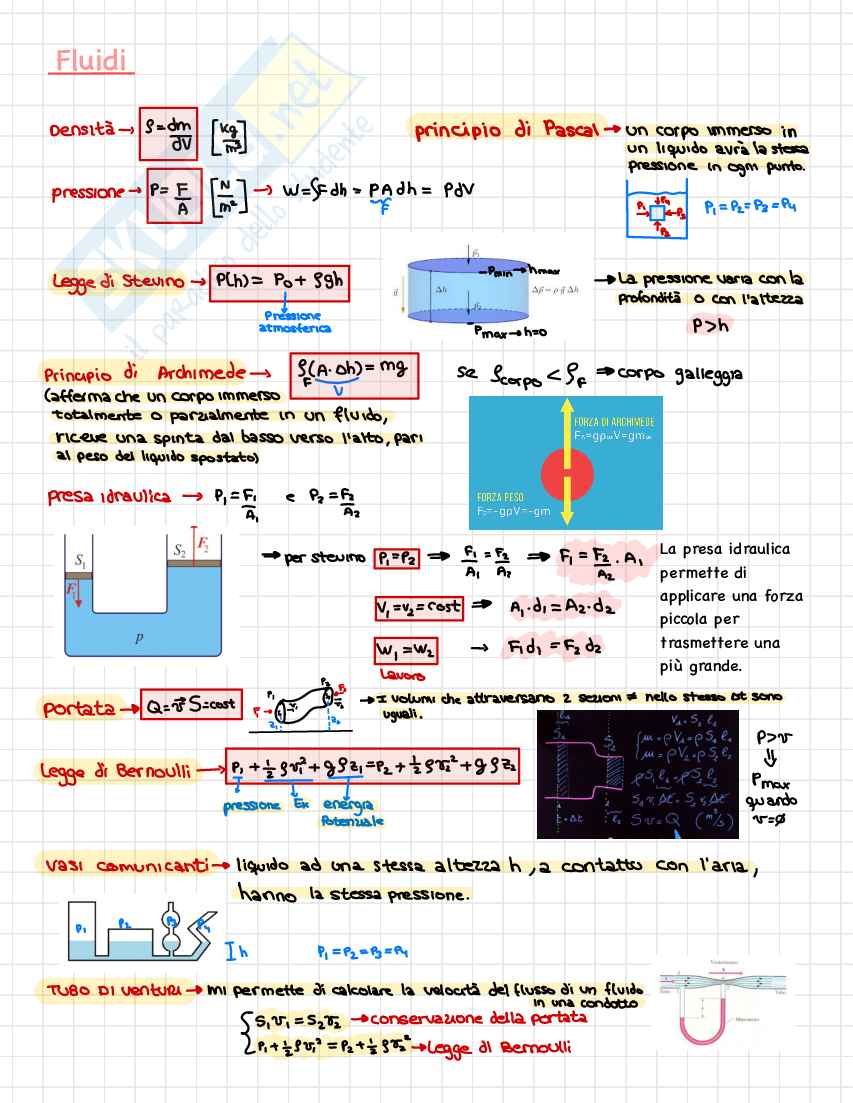 Fluidi
Densità → ρ = dm/dV [kg/m³]
principio di Pascal → un corpo immerso in
un liquido avrà la stessa
pressione in ogni punto.
pressione → P = F/A [N/m²] → W = ∫F dh = PA dh = PdV
F
P₁ P₄ P₂ P₃
P₁ = P₂ = P₃ = P₄
Legge di Stevino → P(h) = P₀ + ρgh
Pressione
atmosferica
Pmin → hmax
Δh
Δp = ρ g Δh
Pmax → h=0
→ La pressione varia con la
profondità o con l'altezza
P>h
Principio di Archimede → ρF (A·Δh) = mg
V
se ρcorpo < ρF ⇒ corpo galleggia
(afferma che un corpo immerso
totalmente o parzialmente in un fluido,
riceve una spinta dal basso verso l'alto, pari
al peso del liquido spostato)
FORZA DI ARCHIMEDE
FORZA PESO
presa idraulica → P₁ = F₁/A₁ e P₂ = F₂/A₂
S₁ S₂ F₂
F₁
p
→ per stevino P₁ = P₂ ⇒ F₁/A₁ = F₂/A₂ ⇒ F₁ = F₂/A₂ · A₁
V₁ = V₂ = cost ⇒ A₁·d₁ = A₂·d₂
W₁ = W₂ → F₁d₁ = F₂d₂
Lavoro
La presa idraulica
permette di
applicare una forza
piccola per
trasmettere una
più grande.
Portata → Q = v S = cost
→ I volumi che attraversano 2 sezioni ≠ nello stesso Δt sono
uguali.
Legge di Bernoulli → P₁ + ½ρv₁² + gρz₁ = P₂ + ½ρv₂² + gρz₂
pressione Ek energia
Potenziale
S v = Q (m³/s)
P>v
⇓
Pmax
quando
v=∅
Vasi comunicanti → liquido ad una stessa altezza h, a contatto con l'aria,
hanno la stessa pressione.
P₁ P₂ P₃ P₄
h
P₁ = P₂ = P₃ = P₄
TUBO DI venturi → mi permette di calcolare la velocità del flusso di un fluido
in una condotto
S₁v₁ = S₂v₂ → conservazione della portata
P₁ + ½ρv₁² = P₂ + ½ρv₂² → Legge di Bernoulli